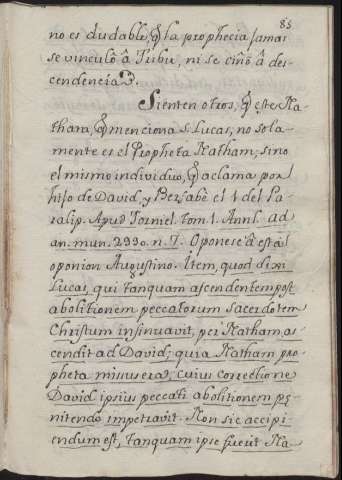 85
no es dudable, q̃ la prophecia jamas
se vinculô â Tribu, ni se ciño â des-
cendencia.
Sienten otros, q̃ este Na-
tham, q̃ menciona S. Lucas, no sola-
mente es el Propheta Natham, sino
el mismo individuo, q̃ aclama por
hijo de David, y Bersabè el 1 del Pa-
ralip. Apud Torniel. tom. 1. Annl. ad
an. mun. 2930. n. 7. Oponese â esta
oponion Augustino. Item, quod dixi
Lucas, qui tanquam ascendentem post
abolitionem peccatorum sacerdotem
Christum insinuavit, per Natham as-
cendit ad David; quia Natham pro-
pheta missus erat, cuius correctione
David ipsius peccati abolitionem pę-
nitendo impetravit. Non sic accipi-
endum est, tanquam ipse fuerit Na-